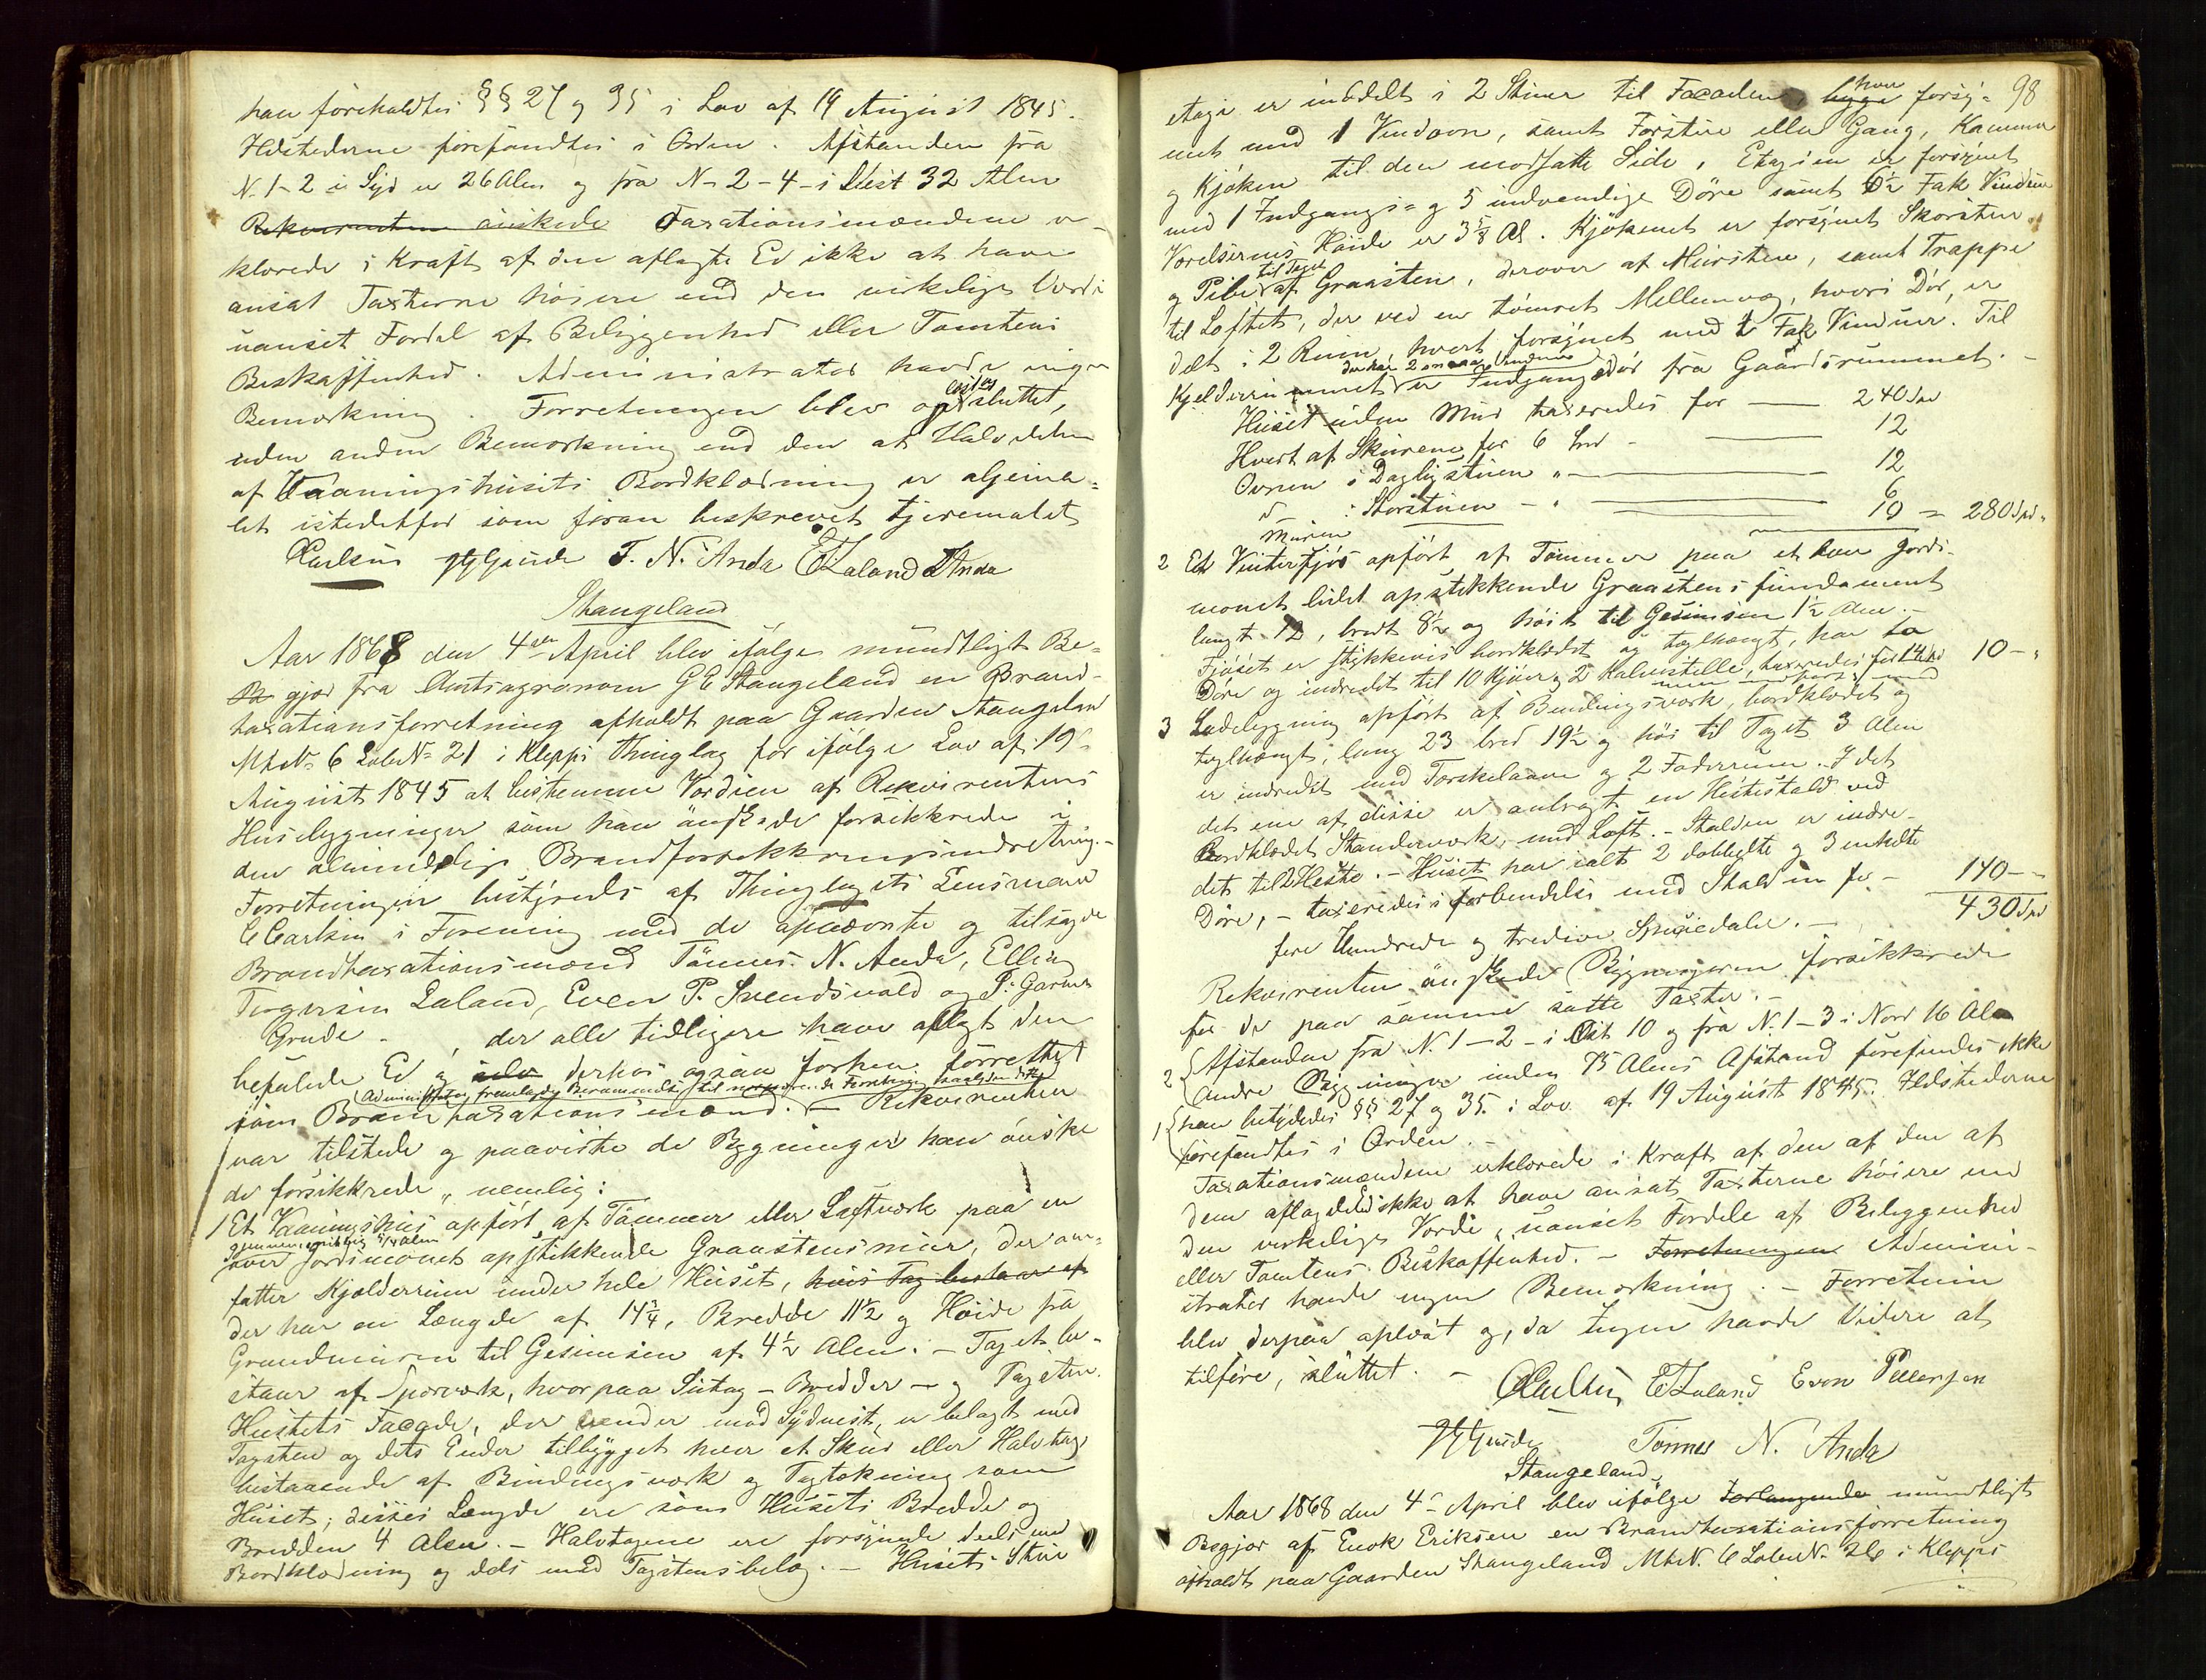 han foreholdtes §§ 27 og 35 i Lov af 19 August 1845.
Ildstederne forefandtes i Orden. Afstanden fra
N. 1-2 i Syd er 26 Alen og fra N- 2-4- i Vest 32 Alen
Rekvirenten önskede Taxationsmændene er-
klærede i Kraft af den aflagte Ed ikke at have
ansat Taxterne höiere end den virkelige Værdi
uanset Fordel af Beliggenhed eller Tomtens
Beskaffenhed. Administrator havde ingen
Bemærkning. Forretningen blev oplæst og sluttet,
uden anden Bemærkning end den at Halvdelen
af Vaaningshusets Bordklædning er oljema-
let istedetfor som foran beskrevet tjæremalet
CCarlsen T. N. Anda ETLaland
Stangeland
Aar 1868 den 4de April blev ifölge mundtligt Be-
gjær fra Amtsagronom G E Stangeland en Brand-
taxationsforretning afholdt paa Gaarden Stangeland
Mt. N= 6 Löbe N= 21 i Klepps Thinglag for ifölge Lov af 19
August 1845 at bestemme Værdien af Rekvirentens
Husebygninger som han önskede forsikkrede i
den almindelige Brandforsikkringsindretning.-
Forretningen bestyredes af Thinglagets Lensmand
C Carlsen i Forening med de opnævnte og tilsagde
Brandtaxationsmænd Tönnes N. Anda, Elling
Torgersen Laland, Even P. Svendsvold og
Grude - , der alle tidligere have aflagt den
befalede Ed og derhos ogsaa forhen forrettet
(Administrator fremlagde
som Brandtaxationsmænd. - Rekvirenten
var tilstede og paaviste de Bygninger han önske
de forsikkrede, nemlig:
1 Et Vaaningshus opfört af Tömmer eller Laftværk paa en
gjennemsnitlig 5/4 Alen
over Jordsmonet opstikkende Graastensmuur, der om-
fatter Kjælderrum under hele Huset, hvis Tag bestaar af
der har en Længde af 14¾, Bredde 11½ og Höide fra
Grundmuren til Gesimsen af 4½ Alen. - Taget be-
staar af Sperværk, hvorpaa Sutag - Bredder - og Tagsten.
Husets Facade, der vender mod Sydvest, er belagt med
Tagsten og dets Ender tilbygget hver et Skur eller Halvtag,
bestaaende af Bindingsværk og Tagtækning som
Huset; disses Længde ere som Husets Bredde og
Bredden 4 Alen. - Halvtagene ere forsynede deels med
Bordklædning og dels med Tagstensbelæg. - Husets Stue
98
etage er inddelt i 2 Stuer til Facaden, hver forsy-
net med 1 Vindovn, samt Forstue eller Gang, Kammer
og Kjöken til den modsatte Side, Etagen er forsynet
med 1 Indgangs- og 5 indvendige Döre samt 6½ Fak Vinduer
Værelsernes Höide er 3⅝ Al. Kjökenet er forsynet Skorsten
til Taget
og Pibe af Graasten, derover af Mursten, samt Trappe
til Loftet, der ved en tömret Mellemvæg, hvori Dör, er
delt i 2 Rum, hvert forsynet med 1 Fak Vinduer. Til
der har 2 smaa Vinduer
Kjelderrummet er Indgangsdör fra Gaardsrummet.-
Huset uden Mur taxeredes for — 240 Spd
Hvert af Skurene for 6 Spd - — 12
Ovnen i Dagligstuen " - — 12
d- i Storstuen - " — 6
Muren 10 = 280 Spd.
2 Et Vinterfjös opfört af Tömmer paa et over Jords-
monet lidet opstikkende Graastensfundament
langt 12, bredt 8½ og höit til Gesimsen 1½ Alen.-
Fjöset er stykkevis bordklædt og teglhængt, har to
Döre og indredet til 10 Kjöer og 2 Kalvestelle, taxeredes for 10-"
3 Ladebygning opfört af Bindingsværk, bordklædet og
teglhængt, lang 23 bred 19½ og höi til Taget 3 Alen
er indredet med Tærskelaave og 2 Foderrum. I det
det ene af disse er anbragt en Hestestald ved
Bordklædet Stænderværk, med Loft. - Stalden er indre-
det til 2 Heste. - Huset har ialt 2 dobbelte og 3 enkelte
Döre, - taxeredes i forbindelse med Stalden for - 140-"
430 Spd
fire Hundrede og tredive Speciedaler. -
Rekvirenten önskede Bygningerne forsikkrede
for de paa samme satte Taxter.-
2 Afstanden fra N. 1-2 - i Öst 10 og fra N. 1-3 i Nord 16 Alen
Andre Bygninger inden 75 Alens Afstand forefindes ikke
1 han betydedes §§ 27 og 35. i Lov af 19 August 1845. Ildstederne
forefandtes i Orden.-
Taxationsmændene erklærede i Kraft af den af den af
dem aflagde Ed ikke at have ansat Taxterne höiere end
den virkelige Værdi, uanset Fordele af Beliggenhed
eller Tomtens Beskaffenhed. - Forretningen Admini-
strator havde ingen Bemærkning. - Forretnin
blev derpaa oplæst og, da Ingen havde Videre at
tilföre, sluttet. -
CCarlsen ETLaland Even Pedersen
Tonnes N. Anda
Stangeland
Aar 1868 den 4de April blev ifölge Forlangende mundtligt
Begjær af Enok Eriksen en Brandtaxationsforretning
afholdt paa Gaarden Stangeland Mt.N. 6 Löbe N. i Klepps